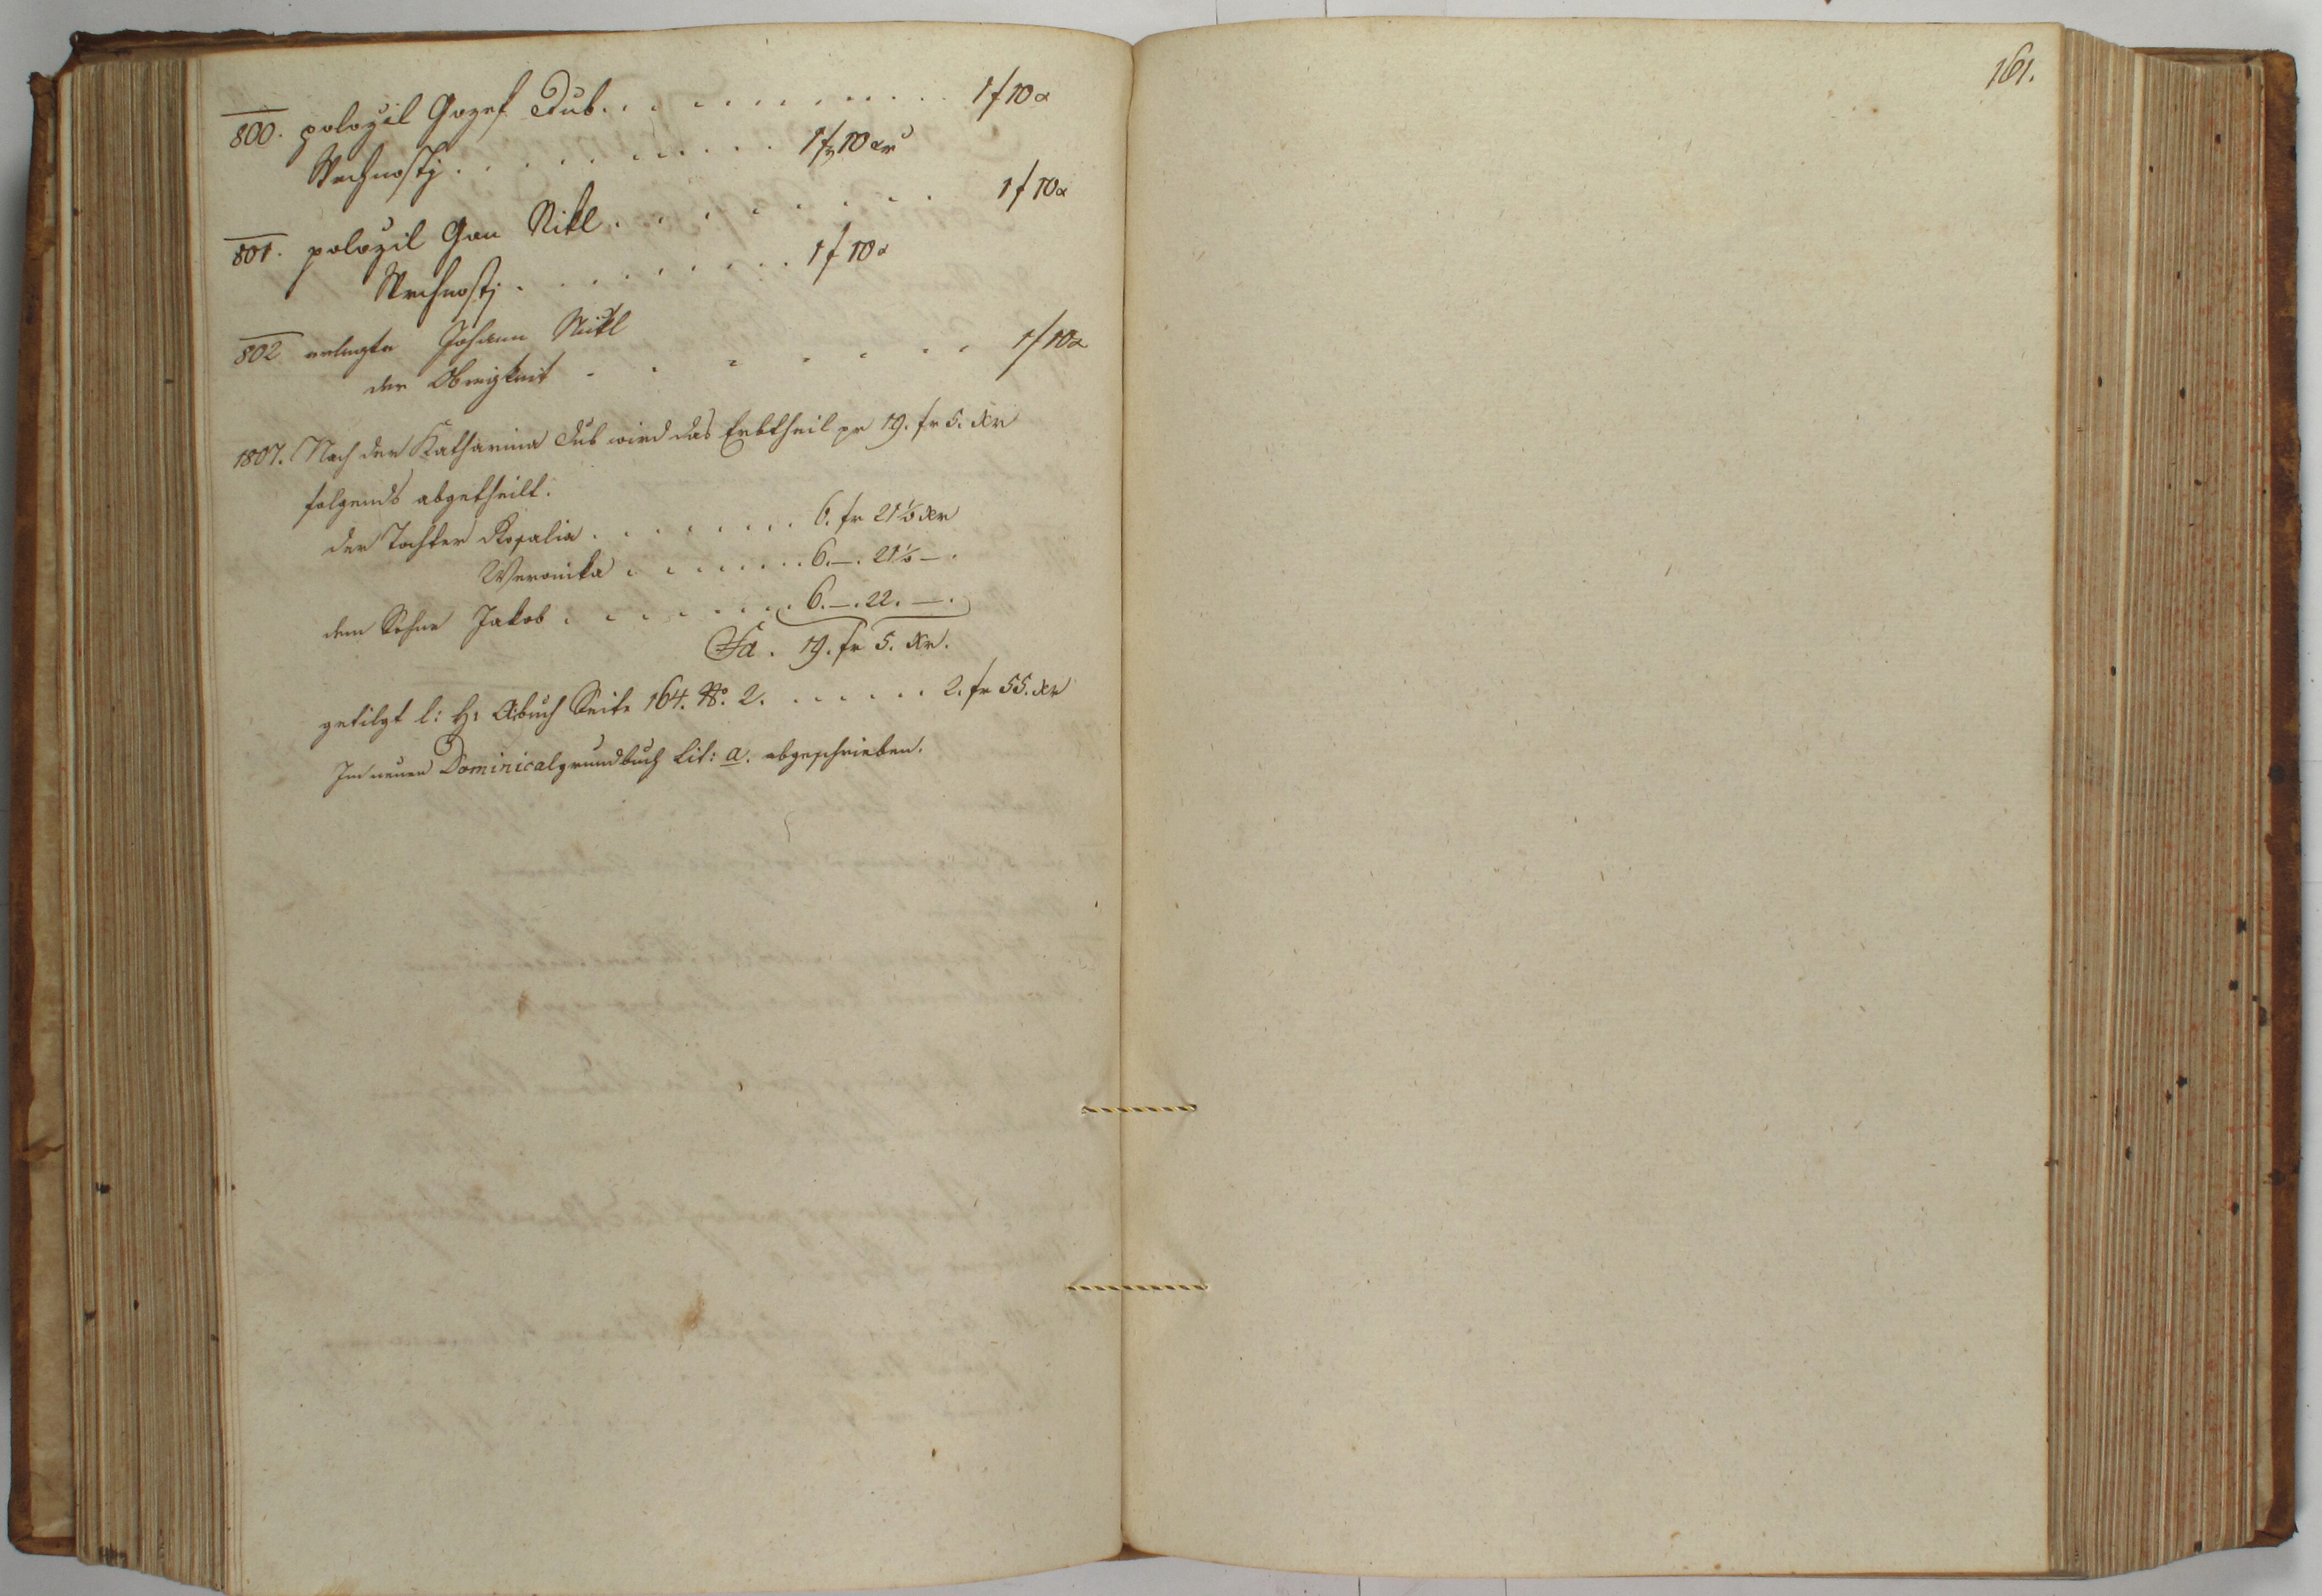 800. položil Gozef Dub . . . . . . . . . . . 1 f 10 x
Wrchnosti . . . . . . . . . 1 f 10 xr
801. položil Gan Nikl . . . . . . . . 1 f 10 x
Wrchnosti . . . . . . . . 1 f 10 x
802 erlegte Johann Nikl
der Obrigkeit - - - - - - - 1 f 10 x
1807. Nach der Katharina Dub wird das Erbtheil pr 19. fr 5. xr
folgends abgetheilt.
der Tochter Rosalia . . . . . . . . 6. fr 21 ½ xr
Weronika . . . . . . . 6. — . 21 ½ — .
dem Sohne Jakob . . . . . . . 6. — . 22. — .
Sa . 19. fr 5. xr.
getilgt l: H: Abuch Seite 164. No. 2. . . . . . . 2. fr 55. xr
Im neuen Dominicalgrundbuch Lit: a. abgeschrieben.
161.